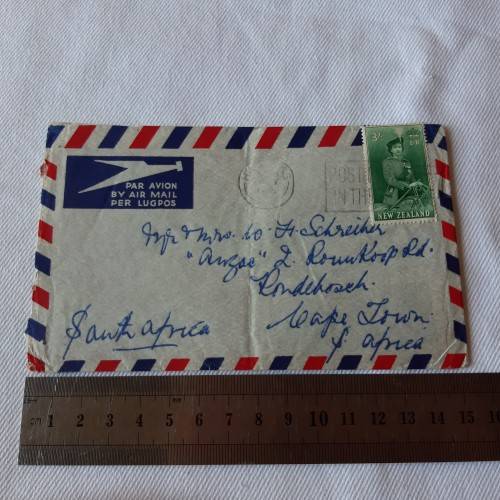 PAR AVION
BY AIR MAIL
PER LUGPOS
POST
IN TH
3/-
E II R
NEW ZEALAND
Mr & Mrs. W. H. Schreiber
"Anzac" 2. Rouwkoop Rd.
Rondebosch.
Cape Town.
S. Africa
South Africa
cm 1 2 3 4 5 6 7 8 9 10 11 12 13 14 15